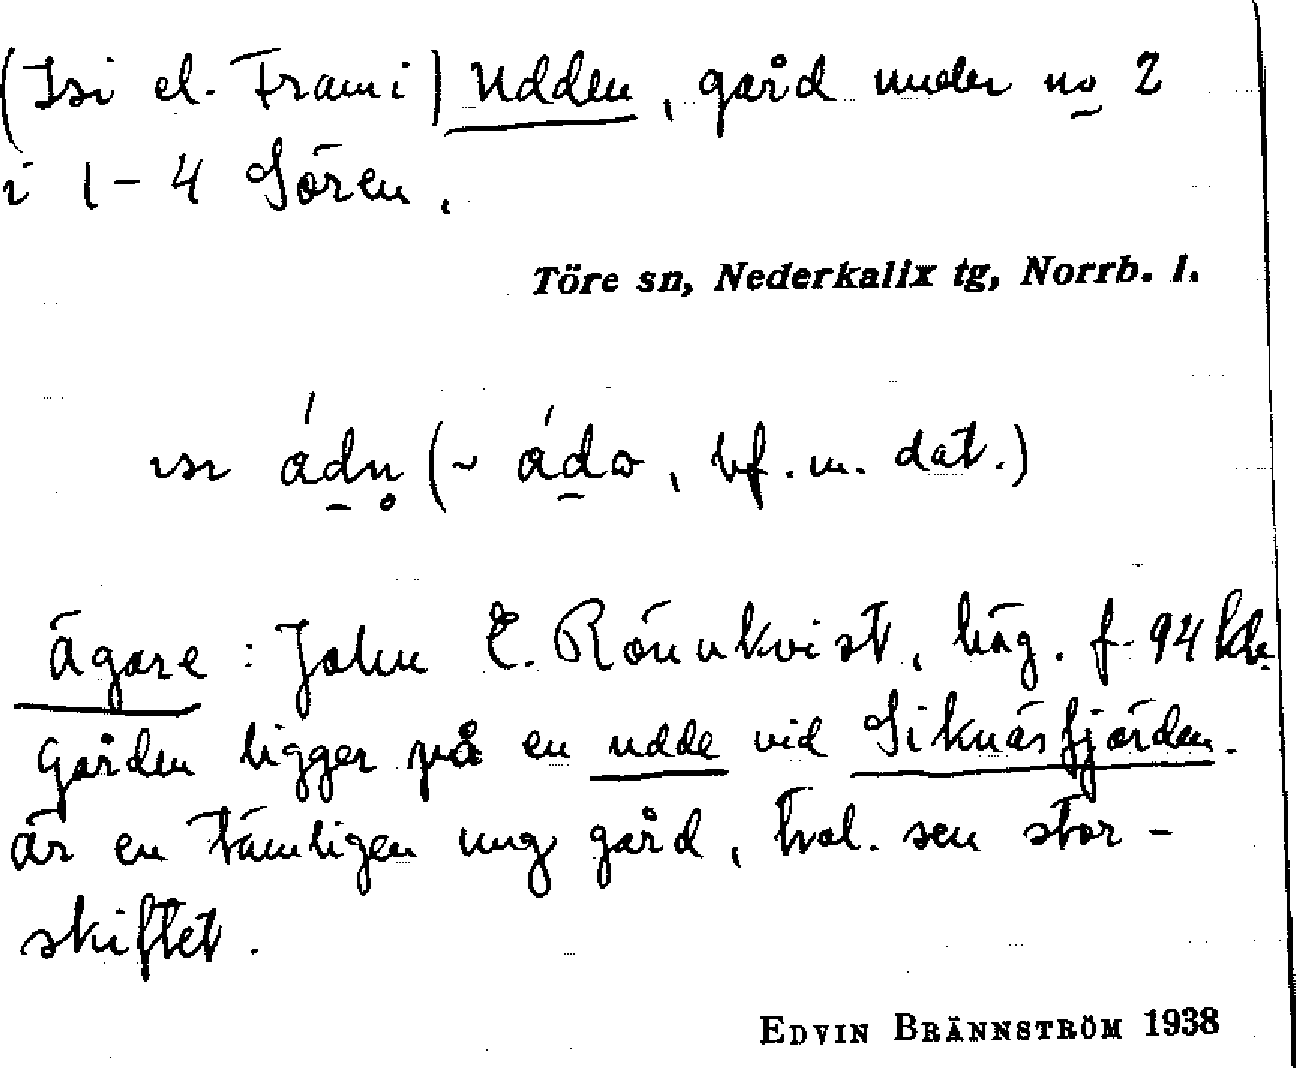 (Isi el. Frami) Udden, gård under no 2
i 1-4 Sören.
Töre sn, Nederkalix tg, Norrb. l.
ısı ádn̥ (~ ádω, bf. m. dat.)
ägare: John E. Rönnkvist, häg. f. 94 
Gården ligger på en udde vid Siknäsfjärden.
är en tämligen ung gård, trol. sen stor-
skiftet.
EDVIN BRÄNNSTRÖM 1938